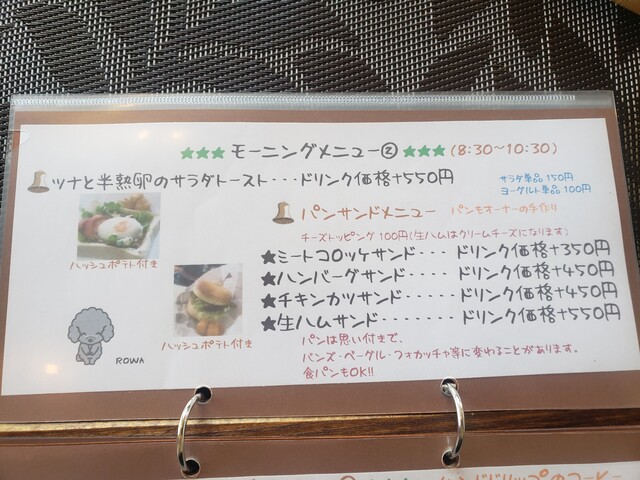 ★★★ モーニングメニュー② ★★★ (8:30～10:30)
ツナと半熟卵のサラダトースト・・・ドリンク価格+550円
サラダ単品 150円
ヨーグルト単品 100円
パンサンドメニュー パンもオーナーの手作り
チーズトッピング 100円(生ハムはクリームチーズになります)
★ミートコロッケサンド・・・・ ドリンク価格+350円
★ハンバーグサンド・・・・・・ ドリンク価格+450円
★チキンカツサンド・・・・・・・ ドリンク価格+450円
★生ハムサンド・・・・・・・・ ドリンク価格+550円
パンは思い付きで、
バンズ・ベーグル・フォカッチャ等に変わることがあります。
食パンもOK!!
ハッシュポテト付き
ハッシュポテト付き
ROWA
ハンドドリップのコーヒー